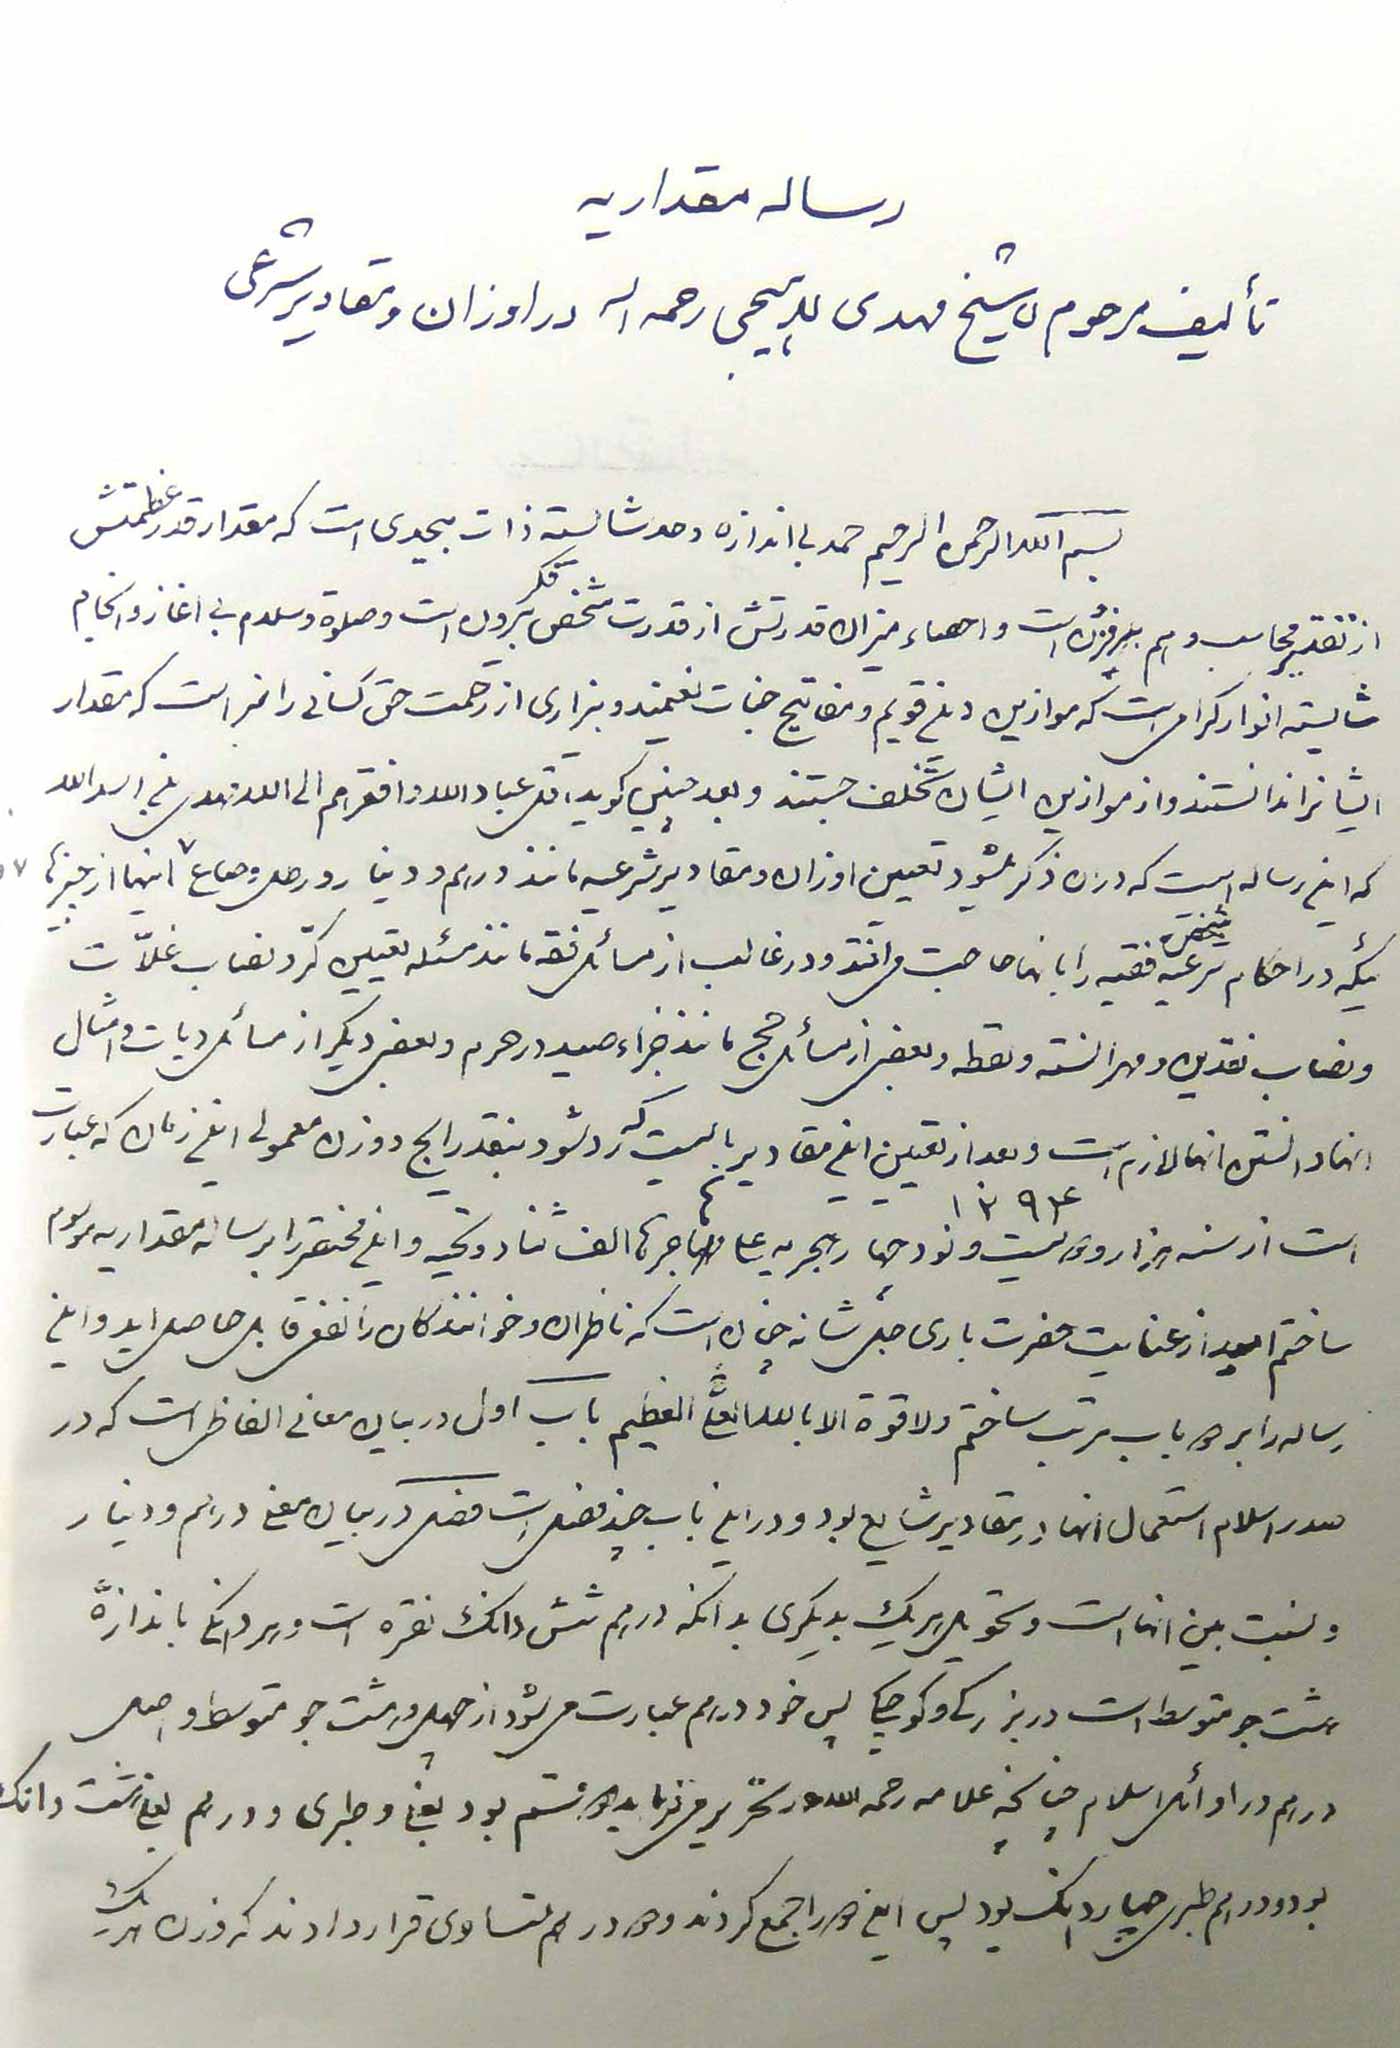 رساله مقداریه
تألیف مرحوم شیخ مهدی لاهیجی رحمه الله در اوزان و مقادیر شرعی
بسم الله الرحمن الرحیم حمد بی اندازه و حد شایسته ذات بیحدی است که مقدار قدر عظمتش
از تقدیر محاسب وهم بیرون است و احصاء میزان قدرتش از قدرت شخص فکر بیرون است و صلوة و سلام بی اغاز و انجام
شایسته انوار کرامی است که موازین دین قویم و مفاتیح جنات نعیمند و بیزاری از رحمت حق کسانی را سزا است که مقدار
ایشانرا ندانستند و از موازین ایشان تخلف جستند و بعد چنین کوید اقل عباد الله و افقرهم الی الله مهدی بن اسد الله
که این رساله است که در ان ذکر میشود تعیین اوزان و مقادیر شرعیه مانند درهم و دینار و رطل و صاع اینها از چیزها
ئیکه در احکام شرعیه شخص فقیه را بانها حاجت می افتد و در غالب از مسائل فقه مانند مسئله تعیین کر و نصاب غلّات
و نصاب نقدین و مهر السنه و لقطه و بعضی از مسائل حج مانند جزاء صید در حرم و بعضی دیکر از مسائل دیات و امثال
اینها دانستن انها لازم است و بعد از تعیین این مقادیر بایست که رد شود بنقد رایج و وزن معمولی این زمان که عبارت
است از سنه هزار و دویست و نود چهار هجریه علی مهاجرها الف ثناء و تحیه و این مختصر را برساله مقداریه موسوم
۱۲۹۴
ساختم امید از عنایت حضرت باری جل شانه چنان است که ناظران و خوانندکان را نفع قابل حاصل اید و این
رساله را بر دو باب مرتب ساختم ولا قوة الا بالله العلیّ العظیم باب اول در بیان معانی الفاظی است که در
صدر اسلام استعمال انها در مقادیر شایع بود و در این باب چند فصل است فصل در بیان معنی درهم و دینار
و نسبت بین انها است و تحویل هریک بدیکری بدانکه درهم شش دانک نقره است و هر دانکی باندازهٔ
هشت جو متوسط است در بزرکی و کوچکی پس خود درهم عبارت می شود از چهل و هشت جو متوسط و اصل
درهم در اوائل اسلام چنانچه علامه رحمه الله در تحریر می فرماید دو قسم بود بغلی و طبری و درهم بغلی هشت دانک
بود و درهم طبری چهار دانک بود پس این دو را جمع کردند و دو درهم متساوی قرار دادند که وزن هریک